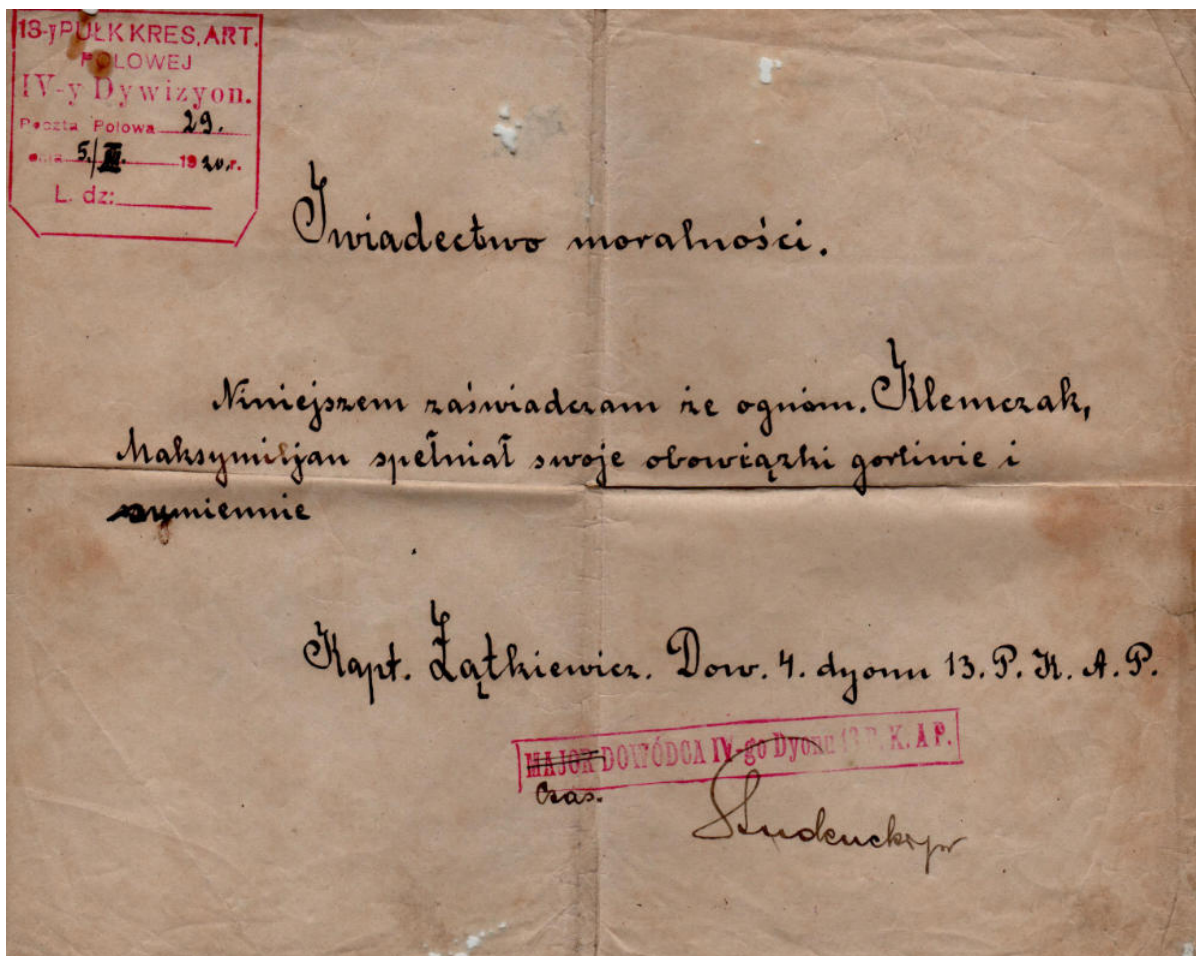 13-y PUŁK KRES. ART.
POLOWEJ
IV-y Dywizyon.
Poczta Polowa 29.
dnia 5./III. 1920.r.
L. dz:
Świadectwo moralności.
Niniejszem zaświadczam że ogniom. Klemczak,
Maksymiljan spełniał swoje obowiązki gorliwie i
sumiennie
Kapt. Żątkiewicz. Dow. 4. dyonu 13. P. K. A. P.
MAJOR DOWÓDCA IV-go Dyonu 13 P. K. A P.
Czas.